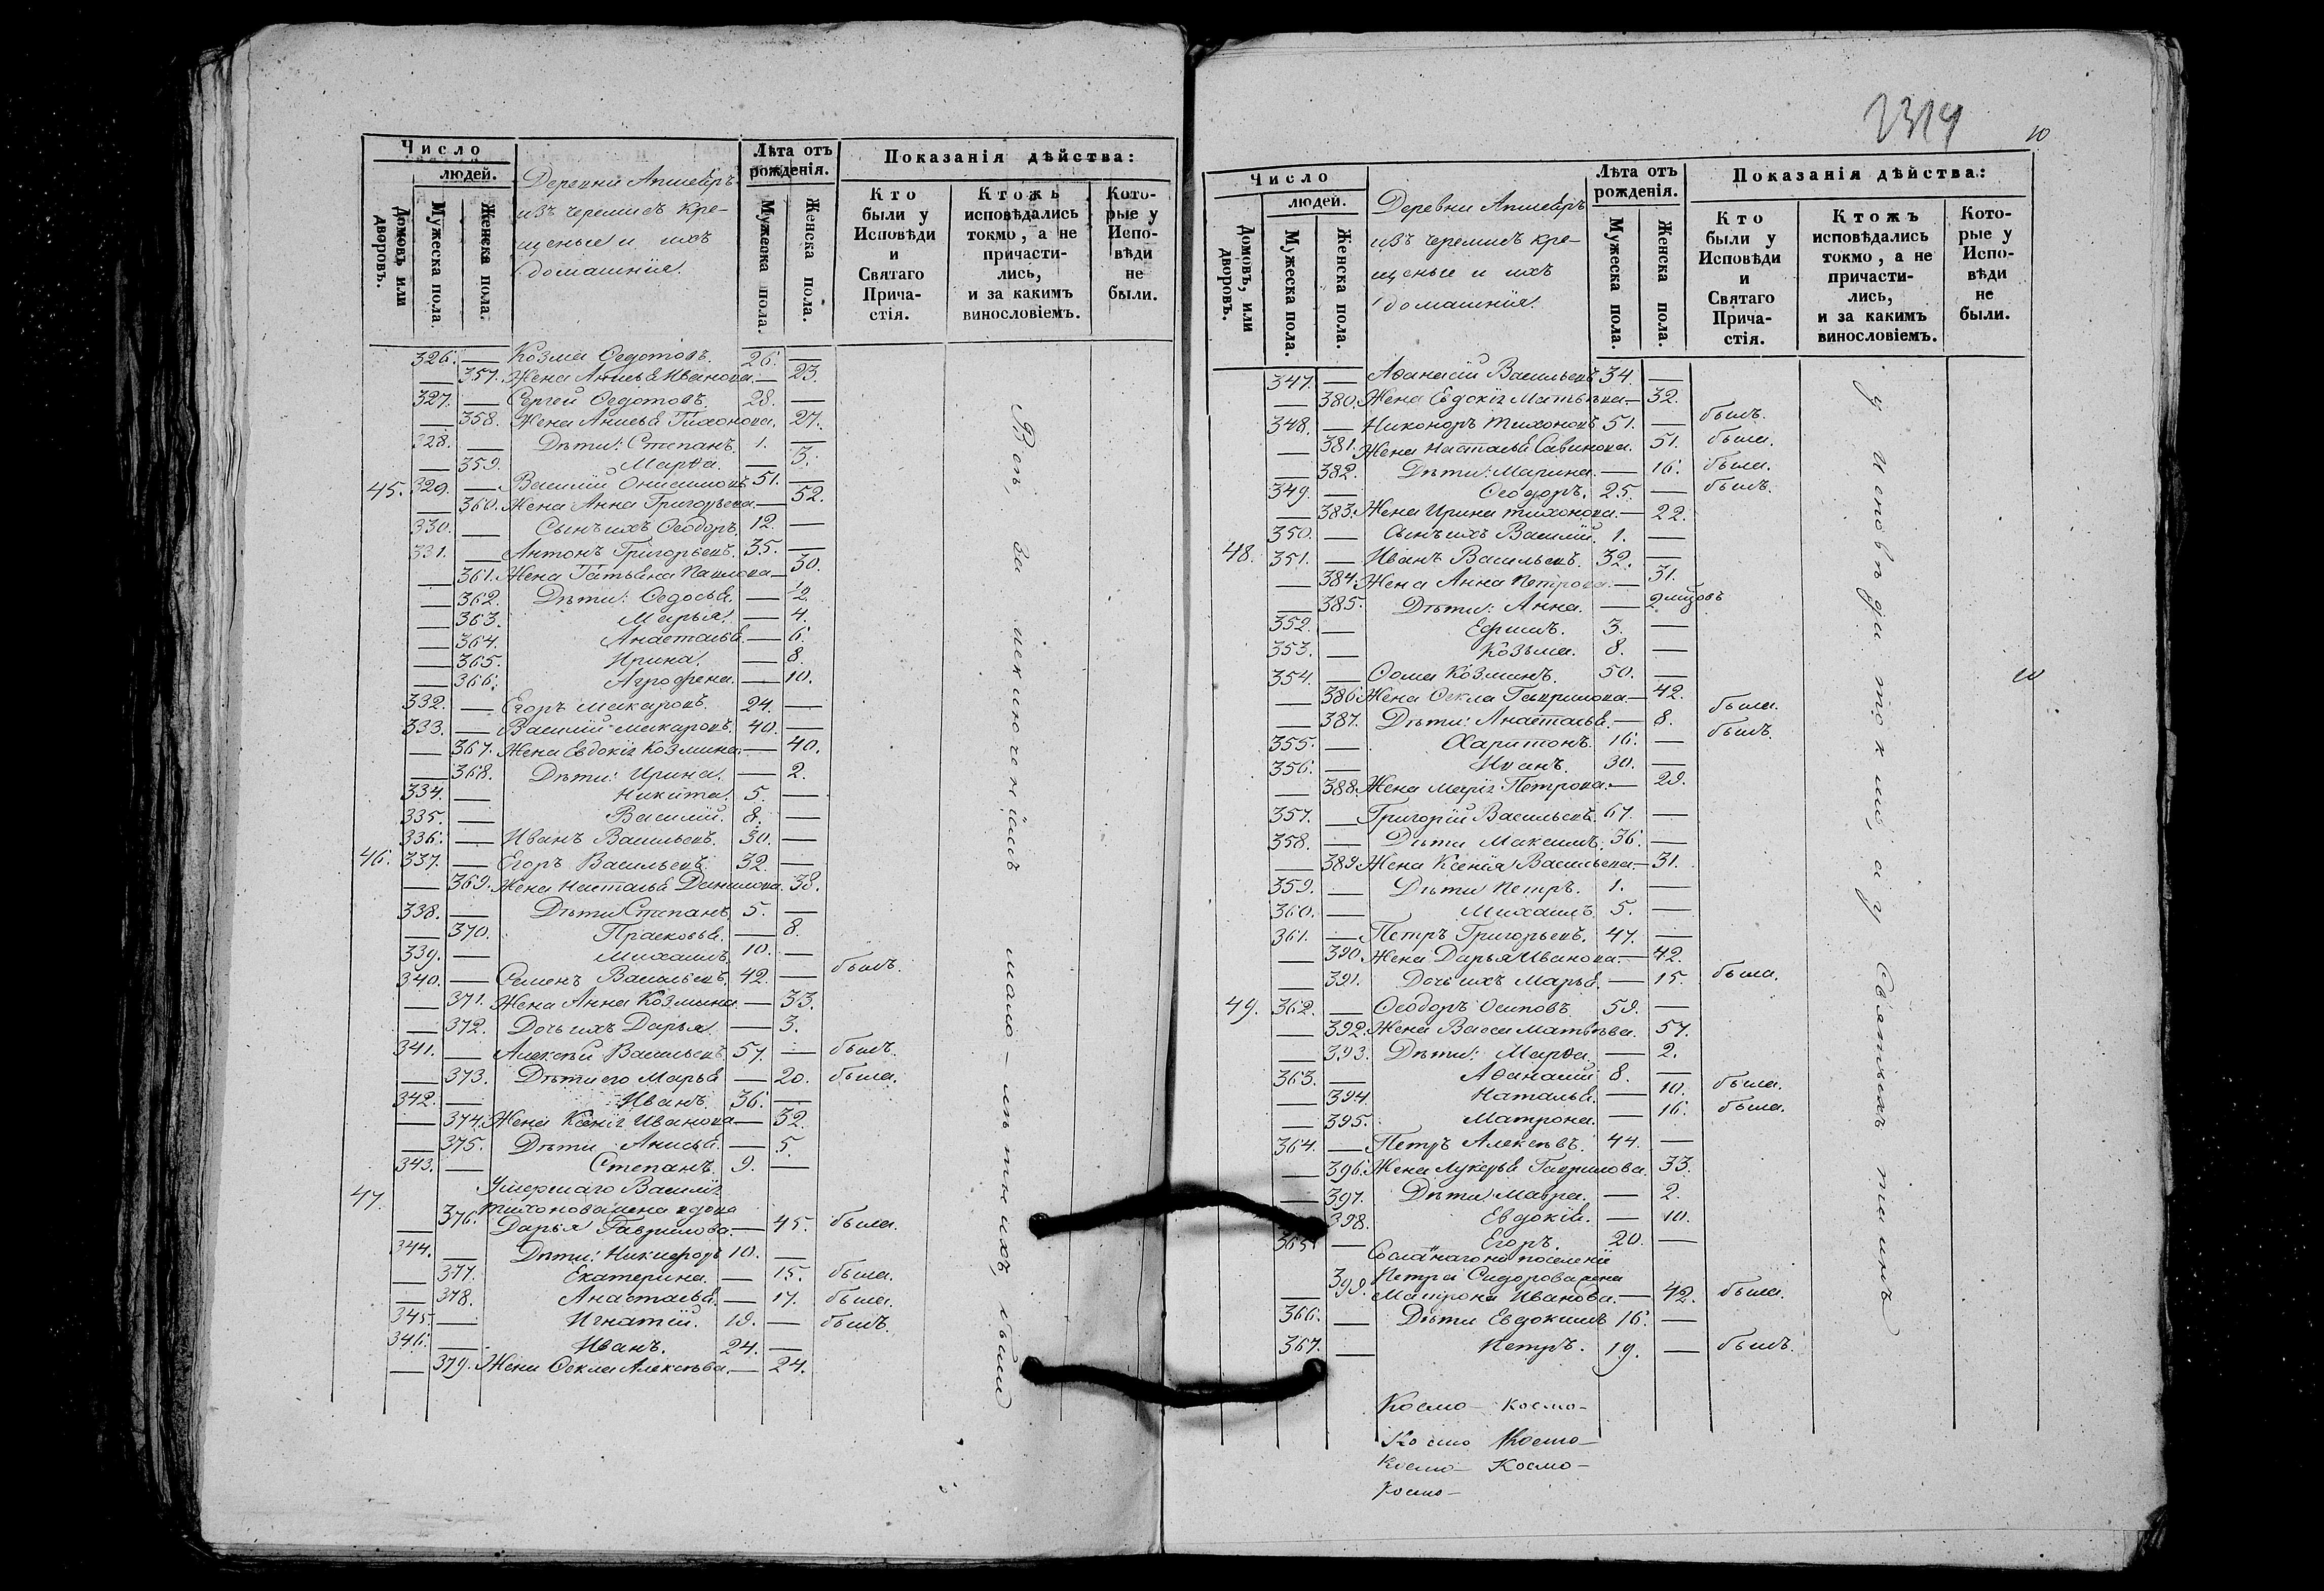 Число
людей.
Домовъ или дворовъ.
Мужеска пола.
Женска пола.
Деревни Апшебръ
изъ черемисъ кре-
щеные и ихъ
домашнiя.
Лѣта отъ
рожденiя.
Мужеска пола.
Женска пола.
Показанiя дѣйства:
Кто
были у
Исповѣди
и
Святаго
Прича-
стiя.
Ктожъ
исповѣдались
токмо, а не
причасти-
лись,
и за какимъ
винословiемъ.
Кото-
рые у
Испо-
вѣди
не
были.
326. — Козма Ѳедотовъ. 26. —
— 357. Жена Анисья Иванова — 23.
327. — Сергей Ѳедотовъ. 28. —
— 358. Жена Анисья Тихонова. 27.
328. — Дѣти: Степанъ. 1. —
— 359. Марѳа. — 3.
45. 329. — Василiй Онисимовъ 51. —
— 360. Жена Анна Григорьева — 52.
330. — Сынъ ихъ Ѳеодоръ. 12. —
331. — Антонъ Григорьевъ. 35. —
— 361. Жена Татьяна Павлова — 30.
— 362. Дѣти: Ѳедосья. — 1/2
— 363. Марья. — 4.
— 364. Анастасья. — 6.
— 365. Ирина. — 8.
— 366. Агрофена. — 10.
332. — Егоръ Макаровъ. 24. —
333. — Василiй Макаровъ. 40. —
— 367. Жена Евдокiя Козмина. — 40.
— 368. Дѣти: Ирина. — 2.
334. — Никита. 5. —
335. — Василiй. 8. —
336. — Иванъ Васильевъ. 30. —
46. 337. — Егоръ Васильевъ. 32. —
— 369. Жена Наталья Данилова. 38.
338. — Дѣти Степанъ. 5. —
— 370. Прасковья. — 8.
339. — Михаилъ. 10. —
340. — Семенъ Васильевъ. 42. — былъ.
— 371. Жена Анна Козмина. — 33.
— 372. Дочь ихъ Дарья. — 3.
341. — Алексѣй Васильевъ. 57. — былъ.
— 373. Дѣти его Марья — 20. была.
342. — Иванъ. 36. —
— 374. Жена Ксенiя Иванова — 32.
— 375. Дѣти Анисья. — 5.
343. — Степанъ. 9. —
47. Умершаго Василiя
Тихонова жена вдова
— 376. Дарья Гаврилова. — 45. была.
344. — Дѣти: Никифоръ 10. —
— 377. Екатерина. — 15. была.
— 378. Анастасья. — 17. была.
345. — Игнатiй. 19. — былъ.
346. — Иванъ. 24. —
— 379. Жена Ѳекла Алексѣева. — 24.
Всѣ, за исключенiемъ мало-лѣтнихъ, были
2314
10
Число
людей.
Домовъ, или дворовъ.
Мужеска пола.
Женска пола.
Деревни Апшебръ
изъ черемисъ кре-
щеные и ихъ
домашнiя.
Лѣта отъ
рожденiя.
Мужеска пола.
Женска пола.
Показанiя дѣйства:
Кто
были у
Исповѣди
и
Святаго
Прича-
стiя.
Ктожъ
исповѣдались
токмо, а не
причасти-
лись,
и за какимъ
винословiемъ.
Кото-
рые у
Испо-
вѣди
не
были.
347. — Аѳанасiй Васильевъ 34. —
— 380. Жена Евдокiя Матвѣева — 32.
348. — Никоноръ Тихоновъ 51. — былъ.
— 381. Жена Наталья Савинова. 51. была.
— 382. Дѣти: Марина. — 16. была.
349. — Ѳеодоръ. 25. — былъ.
— 383. Жена Ирина Тихонова. — 22.
350. — Сынъ ихъ Василiй. 1. —
48. 351. — Иванъ Васильевъ. 32. —
— 384. Жена Анна Петрова. — 31.
— 385. Дѣти: Анна. — 2 мцовъ
352. — Ефимъ. 3. —
353. — Козьма. 8. —
354. — Ѳома Козминъ. 50. —
— 386. Жена Ѳекла Гаврилова — 42.
— 387. Дѣти: Анастасья. — 8. была.
355. — Харитонъ. 16. — былъ.
356. — Иванъ. 30. —
— 388. Жена Марiя Петрова. — 29.
357. — Григорiй Васильевъ. 67. —
358. — Дѣти Максимъ. 36. —
— 389. Жена Ксенiя Васильева. — 31.
359. — Дѣти Петръ. 1. —
360. — Михаилъ. 5. —
361. — Петръ Григорьевъ. 47. —
— 390. Жена Дарья Иванова. — 42.
— 391. Дочь ихъ Марья. — 15. была.
49. 362. — Ѳеодоръ Осиповъ. 59. —
— 392. Жена Васса Матвѣева. 57.
— 393. Дѣти: Марѳа — 2.
363. — Аѳанасiй 8. —
— 394. Наталья. — 10. была.
— 395. Матрона. — 16. была.
364. — Петръ Алексѣевъ. 44. —
— 396. Жена Лукерья Гаврилова. 33.
— 397. Дѣти: Мавра. — 2.
398. Евдокiя. — 10.
365. — Егоръ. 20. —
Сосланаго на поселенiе
Петра Сидорова жена
— 399. Матрона Иванова. — 42. была.
366. — Дѣти Евдокимъ 16. —
367. — Петръ. 19. — былъ.
у Исповѣди токмо, а у Святыхъ таинъ
10
Космо- Космо-
Космо Космо-
Космо- Космо-
Космо-